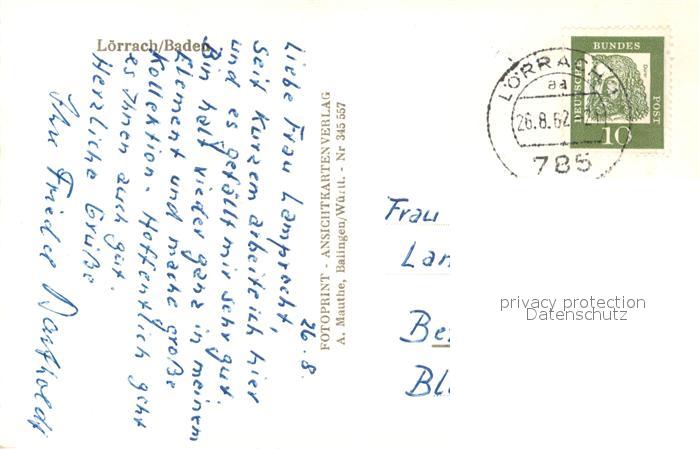 Lörrach/Baden
26.8.
Liebe Frau Lamprecht,
Seit Kurzem arbeite ich hier
und es gefällt mir sehr gut.
Bin halt wieder ganz in meinem
Element und mache große
Kollektion. Hoffentlich geht
es Ihnen auch gut.
Herzliche Grüße
Ihr Frieder
FOTOPRINT - ANSICHTKARTENVERLAG
A. Mauthe, Balingen/Württ. - Nr 345 557
DEUTSCHE
BUNDES
POST
10
LÖRRACH
aa
26.8.62
785
Frau
Lan
Be
Bl
privacy protection
Datenschutz